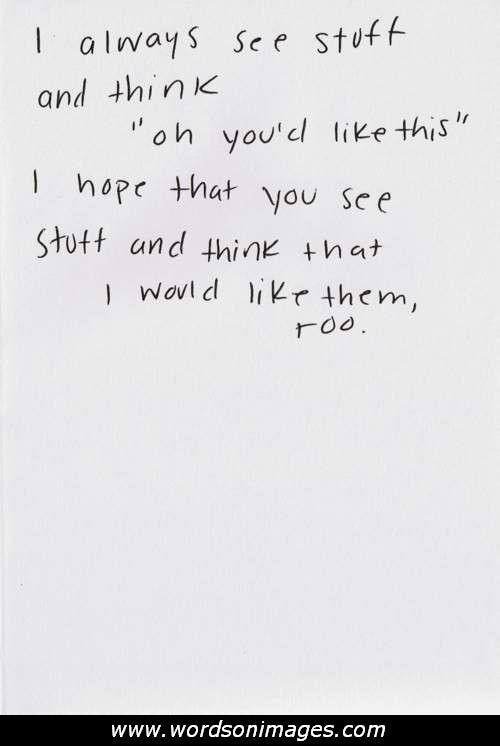 I always see stuff
and think
"oh you'd like this"
I hope that you see
stuff and think that
I would like them,
too.
www.wordsonimages.com